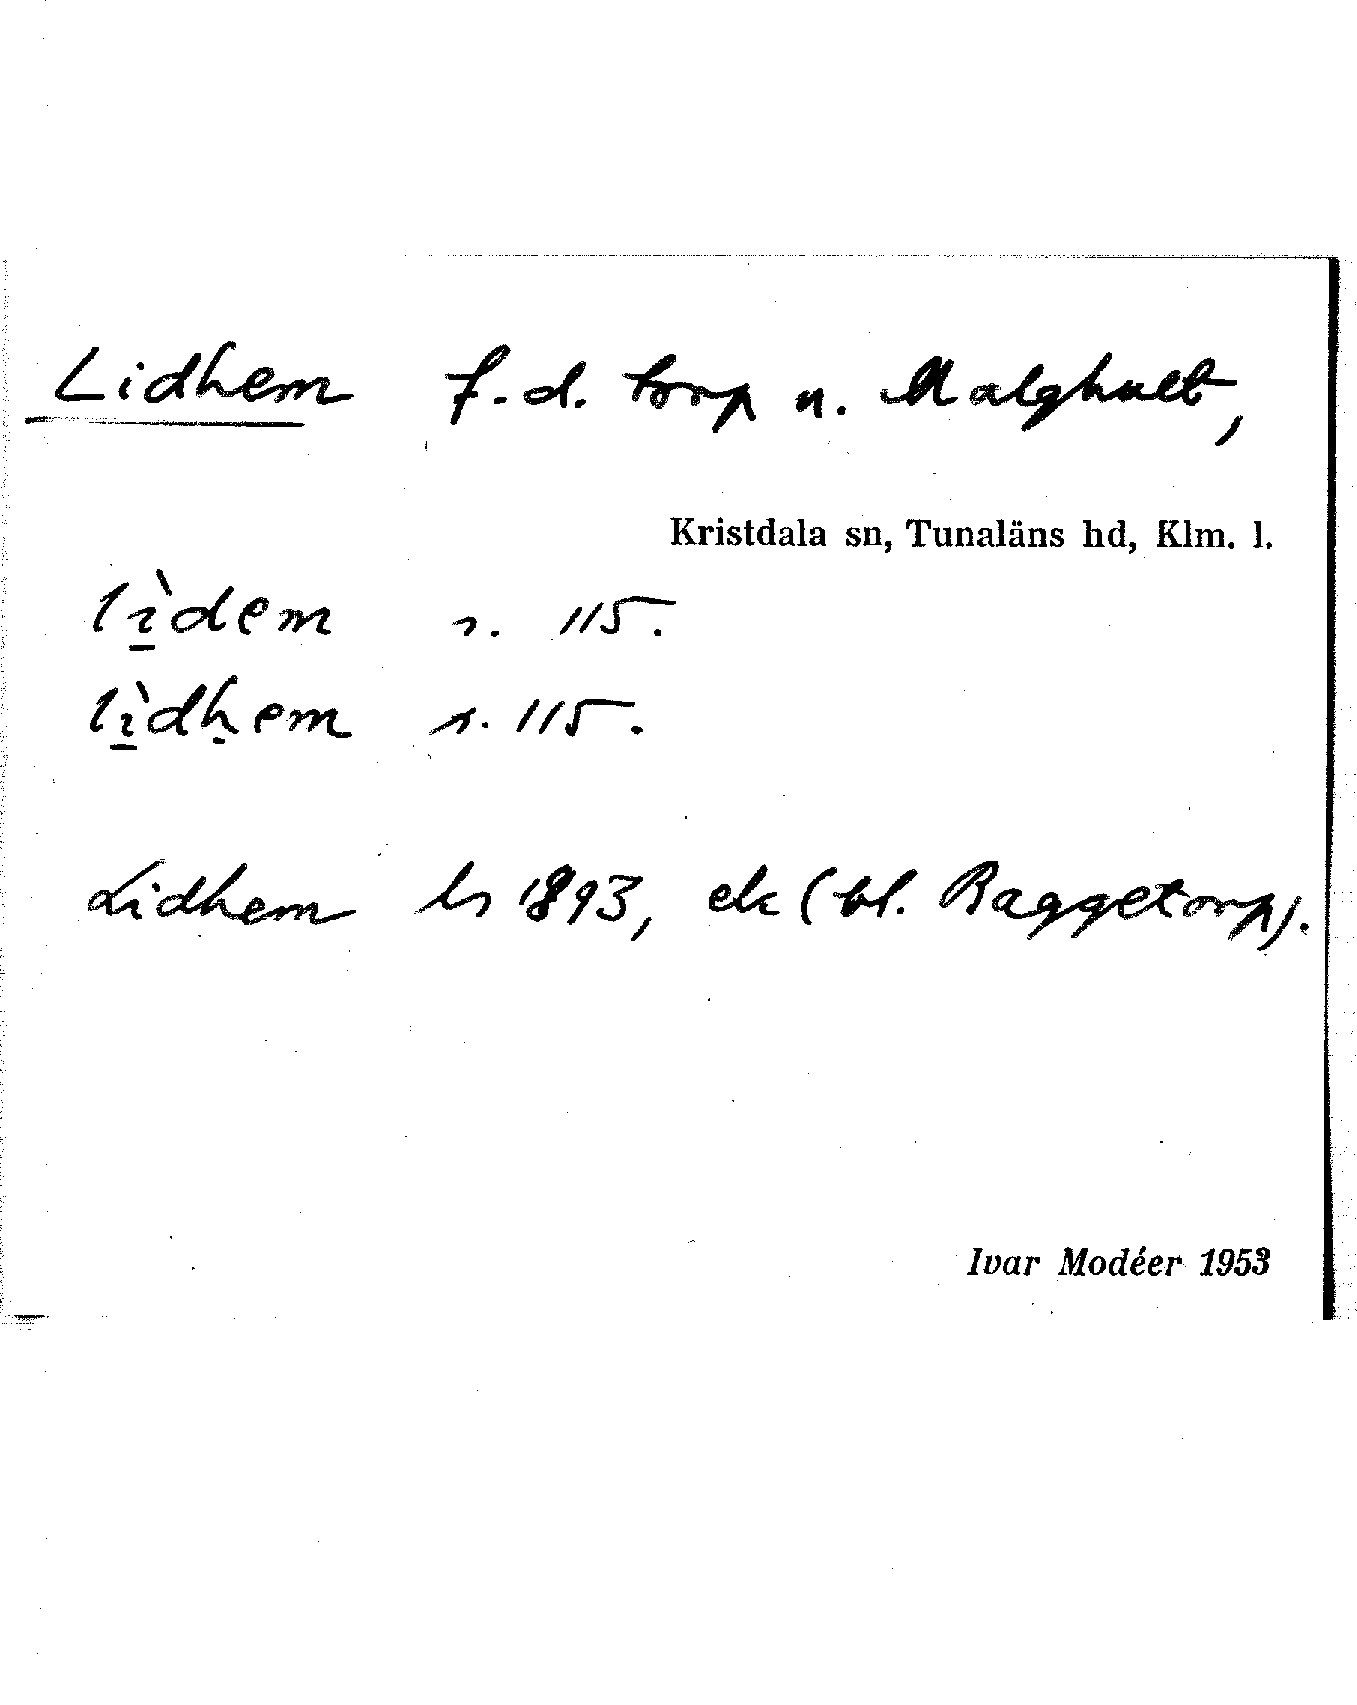 Lidhem f.d. torp u. Malghult,
Kristdala sn, Tunaläns hd, Klm. l.
lı̱̀dem s. 115.
lı̱̀dḥem s. 115.
Lidhem hs 1893, ek (bl. Baggetorp).
Ivar Modéer 1953